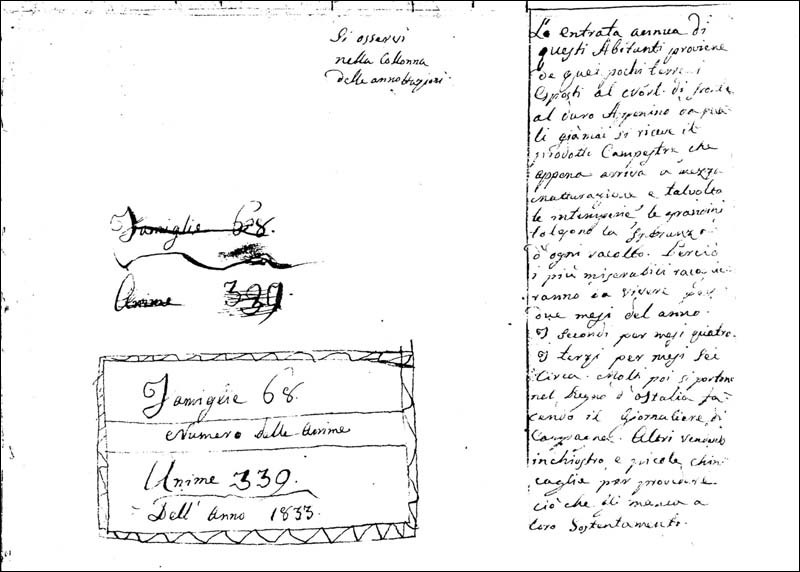 Si osservi
nella Collonna
delle annotazioni.
Famiglie 68.
Anime 339.
Famiglie 68.
Numero delle Anime
Anime 339.
Dell' Anno 1833.
La entrata annua di
questi Abitanti proviene
da quei pochi terreni
esposti al di fronte
al duro Apenino
li giamai si riceve il
prodotto Campestre che
appena arriva a mezza
matturazione e talvolta
le intemperie, le grandini
tolgono la Speranza
d'ogni racolto. Perciò
i più miserabili
ranno da vivere per
due mesi del anno.
I secondi per mesi quatro.
I terzi per mesi Sei
Circa. Molti poi si portono
nel Regno d'Ittalia fa-
cendo il Giornaliere di
Campagne. Altri vendendo
inchiostro, e picole chin-
caglie per provicare
ciò che li manca a
loro Sostentamento.